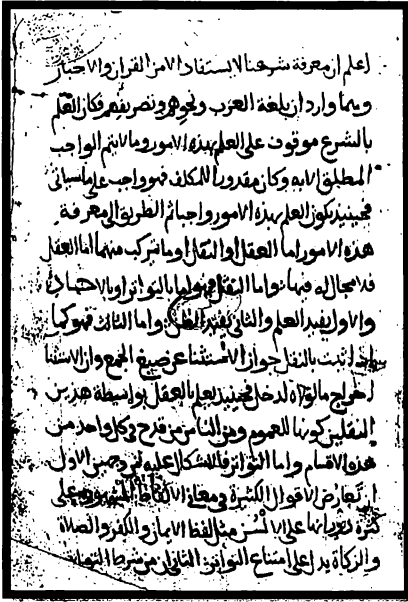 اعلم ان معرفة شرعنا لا يستفاد الا من القران والاخبار
وهما واردان بلغة العرب ونحوهم وتصريفهم فكان العلم
بالشرع موقوف على العلم بهذه الامور وما لا يتم الواجب
المطلق الا به وكان مقدورا للمكلف فهو واجب على ما سياتي
فحينئذ يكون العلم بهذه الامور واجبا ثم الطريق الى معرفة
هذه الامور اما العقل او النقل او ما تركب منهما اما العقل
فلا مجال له فيها واما النقل فهو اما بالتواتر او بالاحاد
والاول يفيد العلم والثاني يفيد الظن واما الثالث فهو كما
ثبت بالنقل جواز الاستثنا عن صيغ الجمع وان الاستثنا
اخراج ما لولاه لدخل فحينئذ يعلم بالعقل بواسطة هذين
النقلين كونها للعموم ومن الناس من قدح في كل واحد من
هذه الاقسام واما التواتر فالاشكال عليه من وجهين الاول
ان تعارض الاقوال الكثيرة في معاني الالفاظ المشهورة على
كثرة دورانها على الالسن مثل لفظ الايمان والكفر والصلاة
والزكاة يدل على امتناع التواتر الثاني ان من شرط التواتر